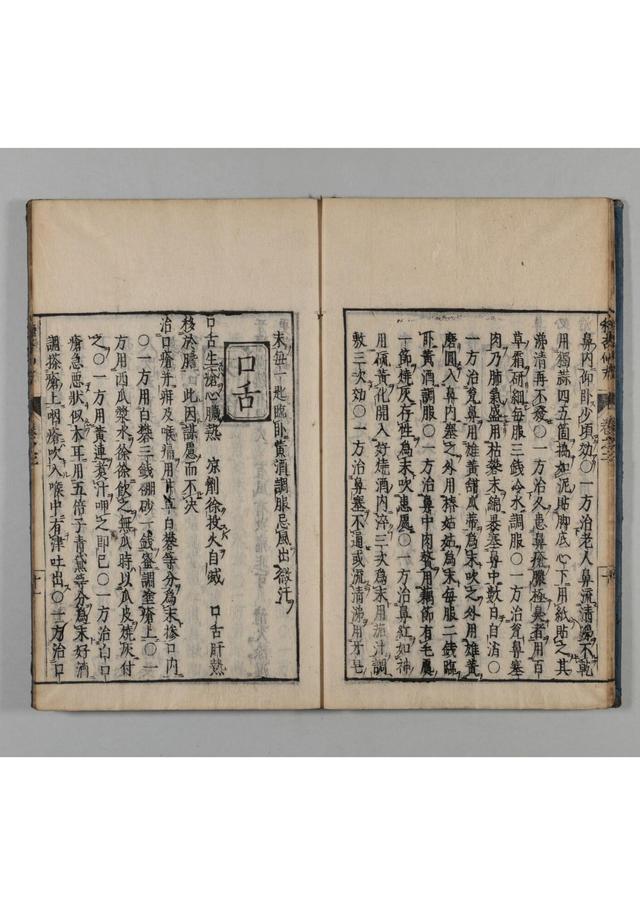 鼻内仰卧少頃効〇一方治老人鼻流清涕不乾
用獨蒜四五箇搗如泥貼脚底心下用紙貼之其
涕清再不發〇一方治久患鼻瘡膿極臭者用百
草霜研細每服三錢冷水調服〇一方治鼻塞
肉乃肺氣盛用枯礬末綿裹塞鼻中数日自消〇
一方治鼻用雄黃甜瓜蒂為末吹之外用雄黃
塞之外用為末每服二錢臨
卧黃酒調服〇一方治鼻中肉贅用藕節有毛處
一節燒灰存性為末吹患處〇一方治鼻紅如神
用硫黃化開入好燒酒内淬三次為末用茄汁調
敷三次効〇一方治鼻塞不通或流清涕用牙皂
末每一匙臨卧黃酒調服忌風出微汗
口舌
口舌生瘡心臟熱 凉劑徐投火自滅 口舌肝熱
移於膽 此因謀慮而不决
治口瘡并牙及喉痛用甘草白礬等分為末摻口内
〇一方用白礬三錢硼砂一錢蜜調塗瘡上〇一
方用西瓜漿水徐徐飲之無瓜時以瓜皮燒灰付
之〇一方用黃連煑汁呷之即已〇一方治白口
瘡急惡狀似木耳用五倍子青黛等分為末好酒
調搽瘡上咽瘡吹入喉中有津吐出〇一方治口